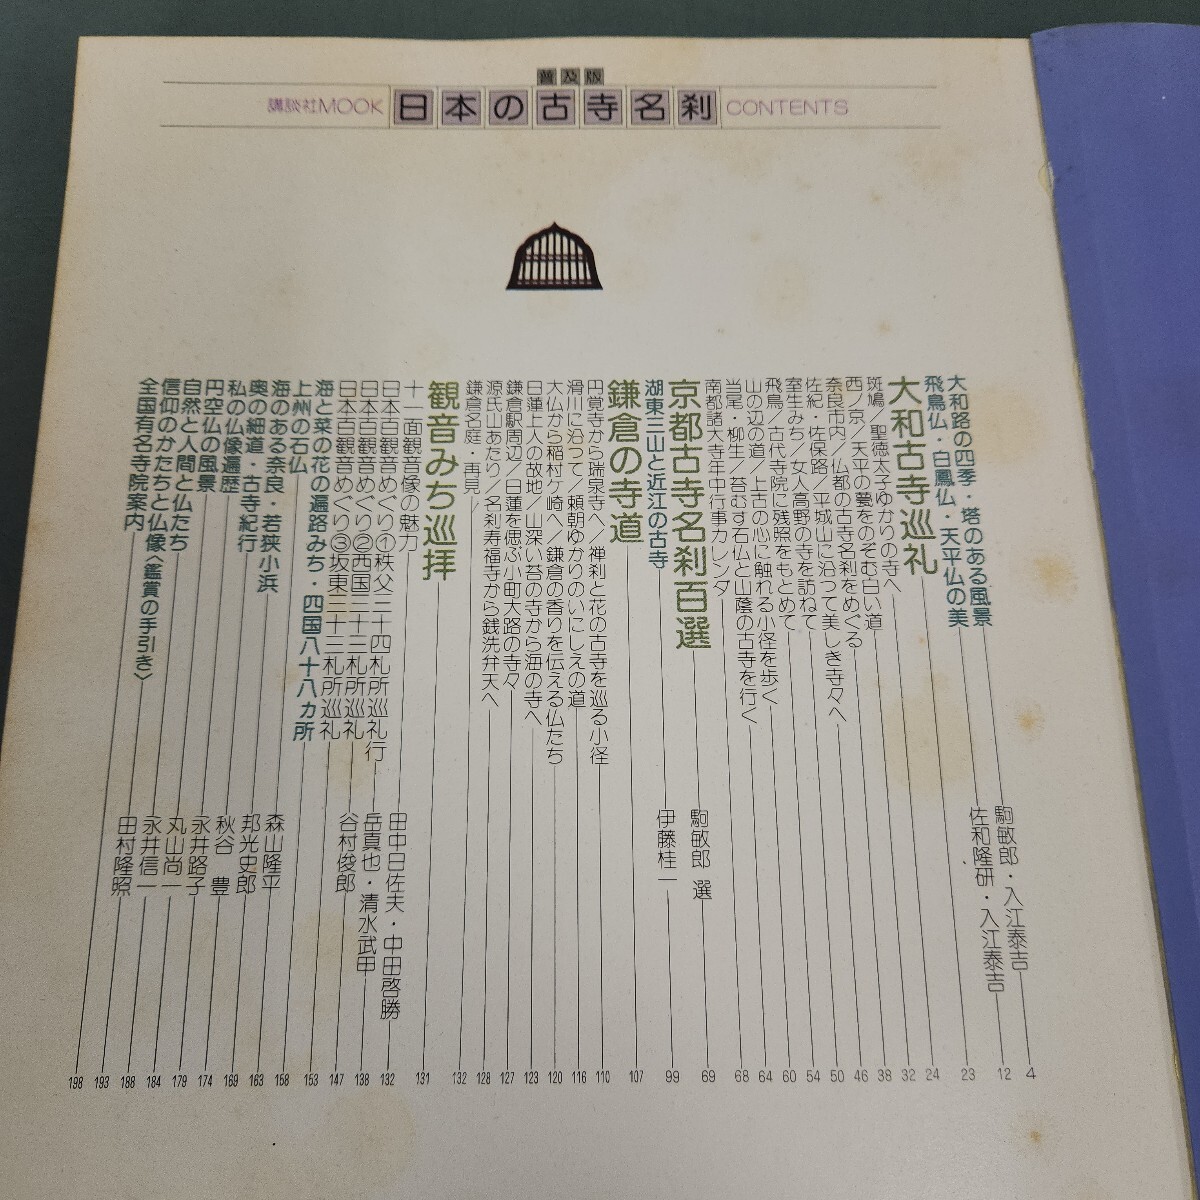 普及版
講談社MOOK 日本の古寺名刹 CONTENTS
大和路の四季・塔のある風景 駒敏郎・入江泰吉 4
飛鳥仏・白鳳仏・天平仏の美 佐和隆研・入江泰吉 12
大和古寺巡礼 23
斑鳩／聖徳太子ゆかりの寺へ 24
西ノ京／天平の甍をのぞむ白い道 32
奈良市内／仏都の古寺名刹をめぐる 38
佐紀・佐保路／平城山に沿って美しき寺々へ 46
室生みち／女人高野の寺を訪ねて 50
飛鳥／古代寺院に残照をもとめて 54
山の辺の道／上古の心に触れる小径を歩く 60
当尾・柳生／苔むす石仏と山蔭の古寺を行く 64
南都諸大寺年中行事カレンダー 68
京都古寺名刹百選 駒敏郎 選 69
湖東三山と近江の古寺 伊藤桂一 99
鎌倉の寺道 107
円覚寺から瑞泉寺へ／禅刹と花の古寺を巡る小径 110
滑川に沿って／頼朝ゆかりのいにしえの道 116
大仏から稲村ケ崎へ／鎌倉の香りを伝える仏たち 120
日蓮上人の故地／山深い苔の寺から海の寺へ 123
鎌倉駅周辺／日蓮を偲ぶ小町大路の寺々 127
源氏山あたり／名刹寿福寺から銭洗弁天へ 128
鎌倉名庭・再見 132
観音みち巡拝 131
十一面観音像の魅力 田中日佐夫・中田啓勝 132
日本百観音めぐり①秩父三十四札所巡礼行 岳真也・清水武甲 138
日本百観音めぐり②西国三十三札所巡礼
日本百観音めぐり③坂東三十三札所巡礼 谷村俊郎 147
海と菜の花の遍路みち・四国八十八カ所 153
上州の石仏 森山隆平 158
海のある奈良・若狭小浜 邦光史郎 163
奥の細道・古寺紀行 秋谷 豊 169
私の仏像遍歴 永井路子 174
円空仏の風景 丸山尚一 179
自然と人間と仏たち 永井信一 184
信仰のかたちと仏像〈鑑賞の手引き〉 田村隆照 188
全国有名寺院案内 193
198